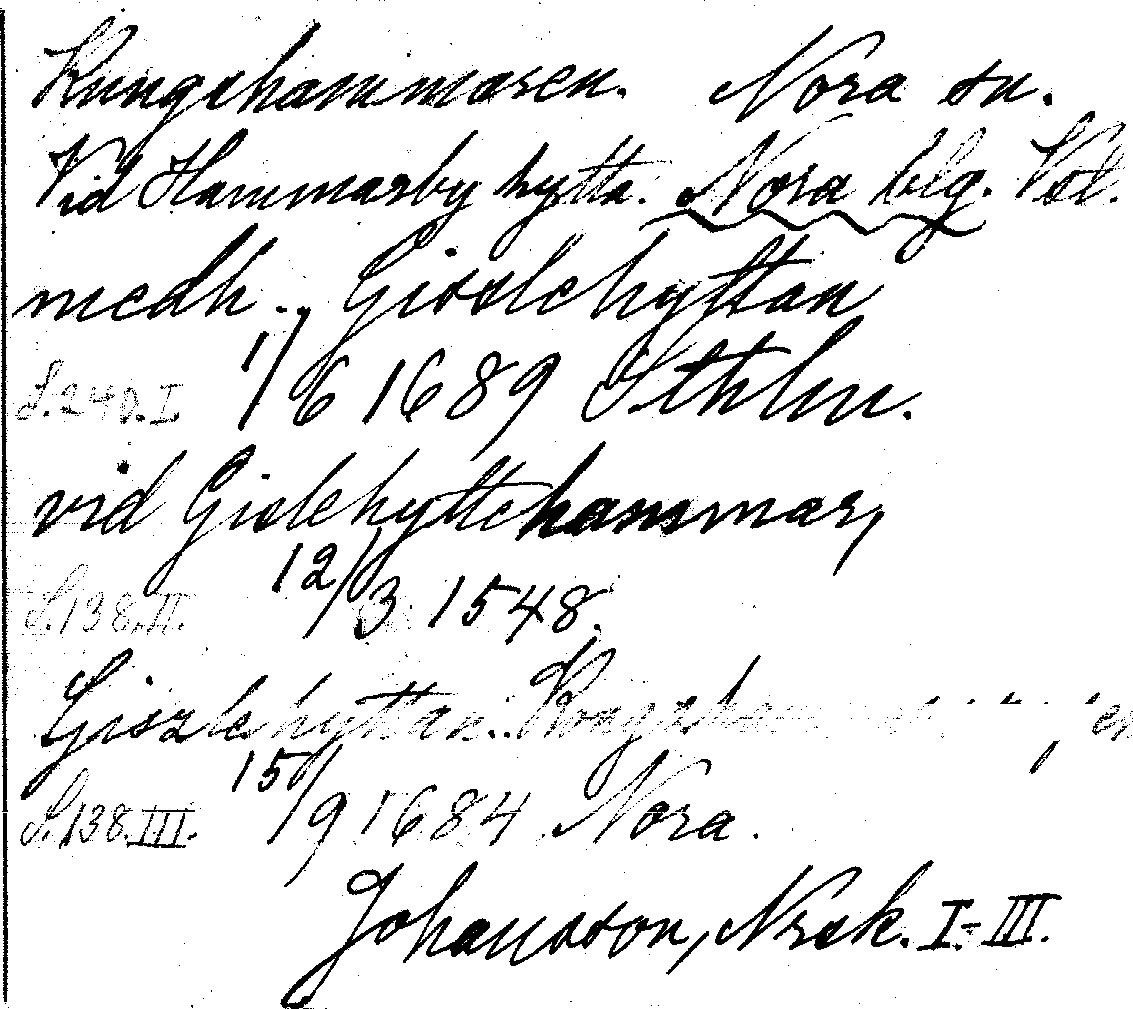 Kungshammaren. Nora sn.
Vid Hammarby hytta. Nora blg. Vol.
medh. Gisslehyttan
S. 240. I. 1/6 1689 Sthlm.
vid Gislehyttehammar,
S. 138. II. 12/3 1548.
Giszlehyttan.
S. 138. III. 15/9 1684 Nora.
Johansson, Nrsk. I-III.